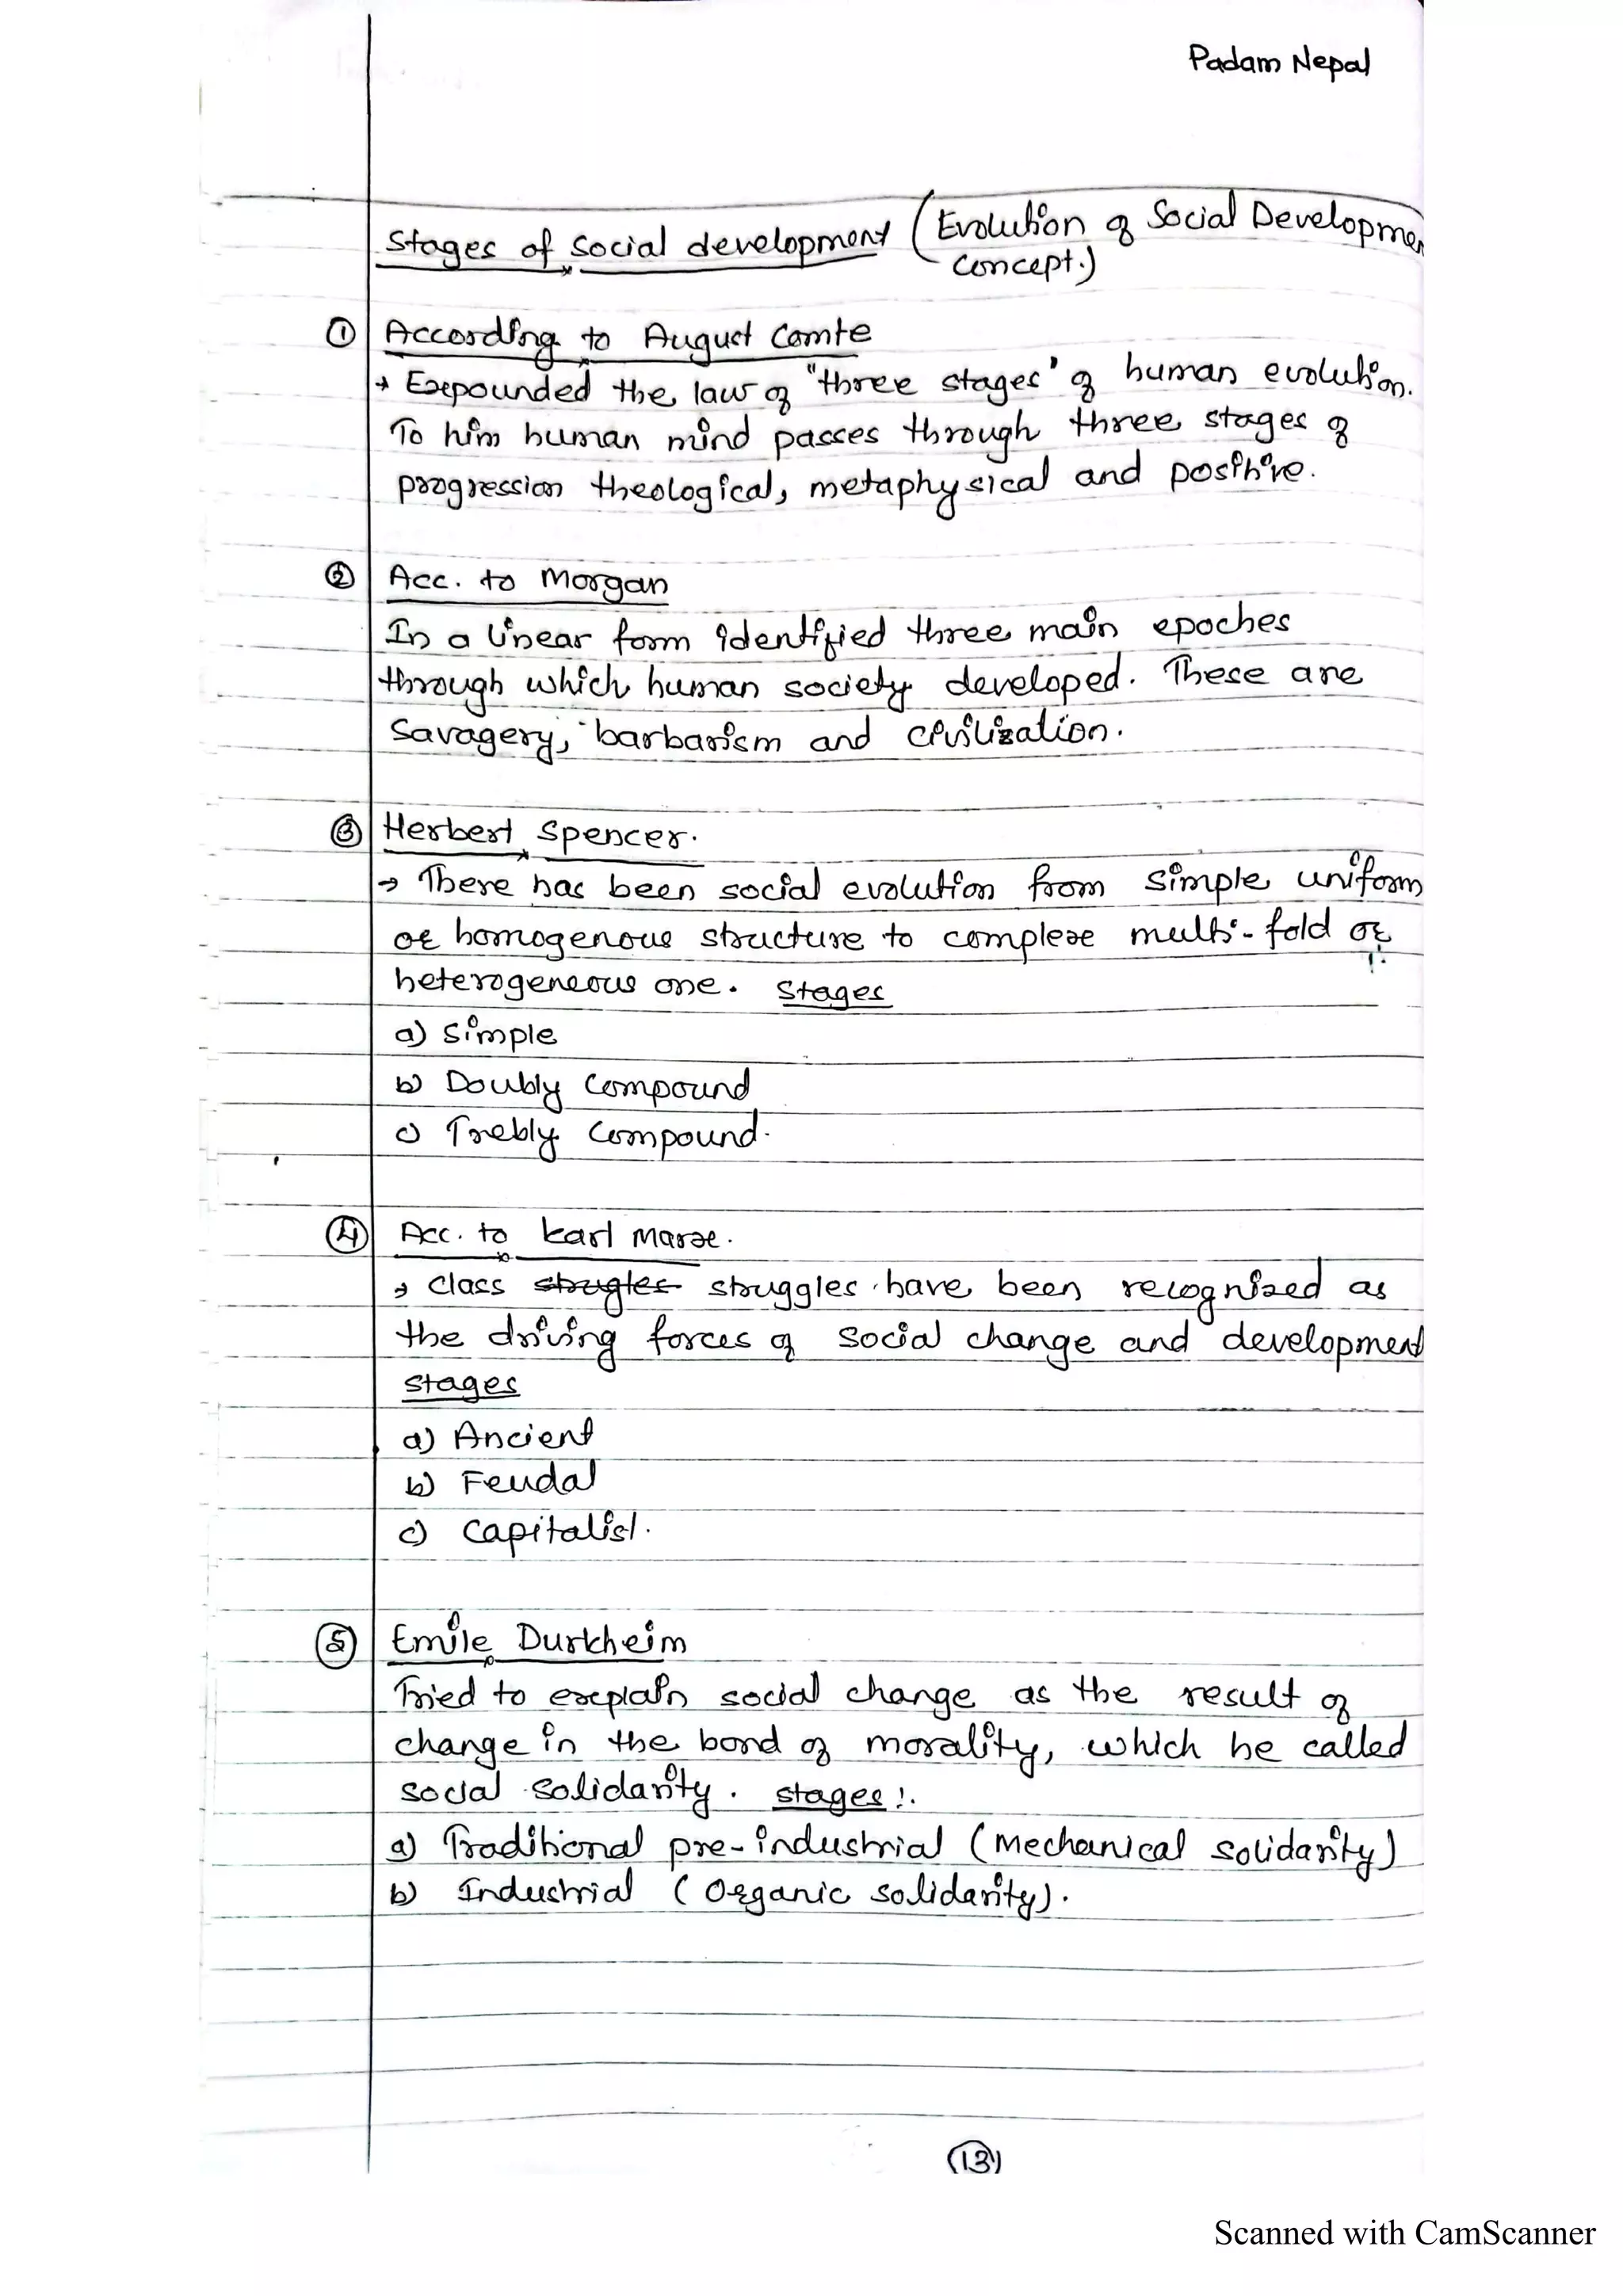 Padam Nepal
Stages of social development (Evolution of Social Developmen
concept.)
① According to August Comte
→ Expounded the law of "three stages" of human evolution.
To him human mind passes through three stages of
progression theological, metaphysical and positive.
② Acc. to Morgan
In a linear form identified three main epoches
through which human society developed. These are
Savagery, barbarism and civilization.
③ Herbert Spencer.
→ There has been social evolution from simple uniform
or homogenous structure to complex multi-fold or
heterogeneous one. Stages
a) Simple
b) Doubly Compound
c) Trebly Compound.
④ Acc. to karl marx.
→ class strugles struggles have been recognized as
the driving forces of social change and development
stages
a) Ancient
b) Feudal
c) capitalist.
⑤ Emile Durkheim
Tried to explain social change as the result of
change in the bond of morality, which he called
social solidarity. stages:.
a) Traditional pre-industrial (Mechanical solidarity)
b) Industrial (Organic solidarity).
(13)
Scanned with CamScanner